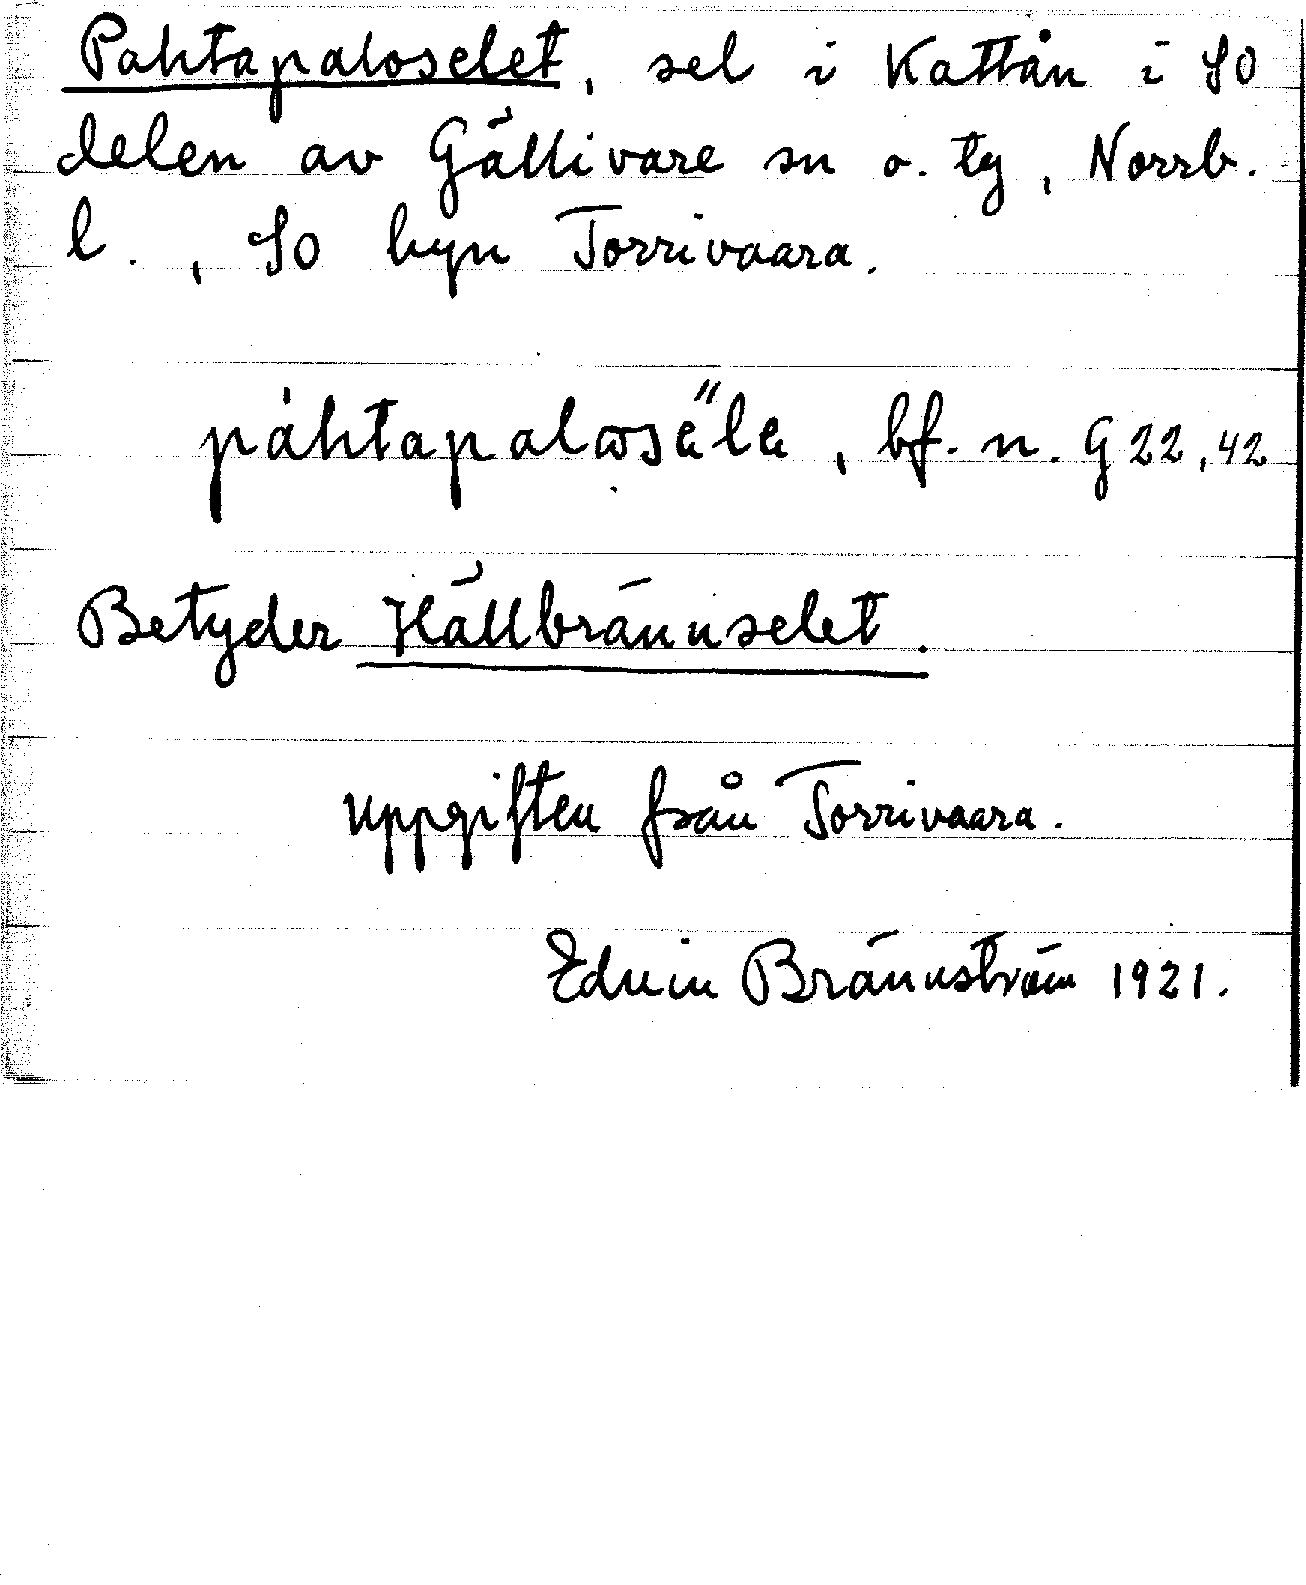 Pahtapaloselet, sel i Kattån i SO
delen av Gällivare sn o. tg, Norrb.
l., SO byn Torrivaara.
bf. n. G 22, 42
Betyder Hällbrännselet.
uppgiften från Torrivaara.
Edvin Brännström 1921.